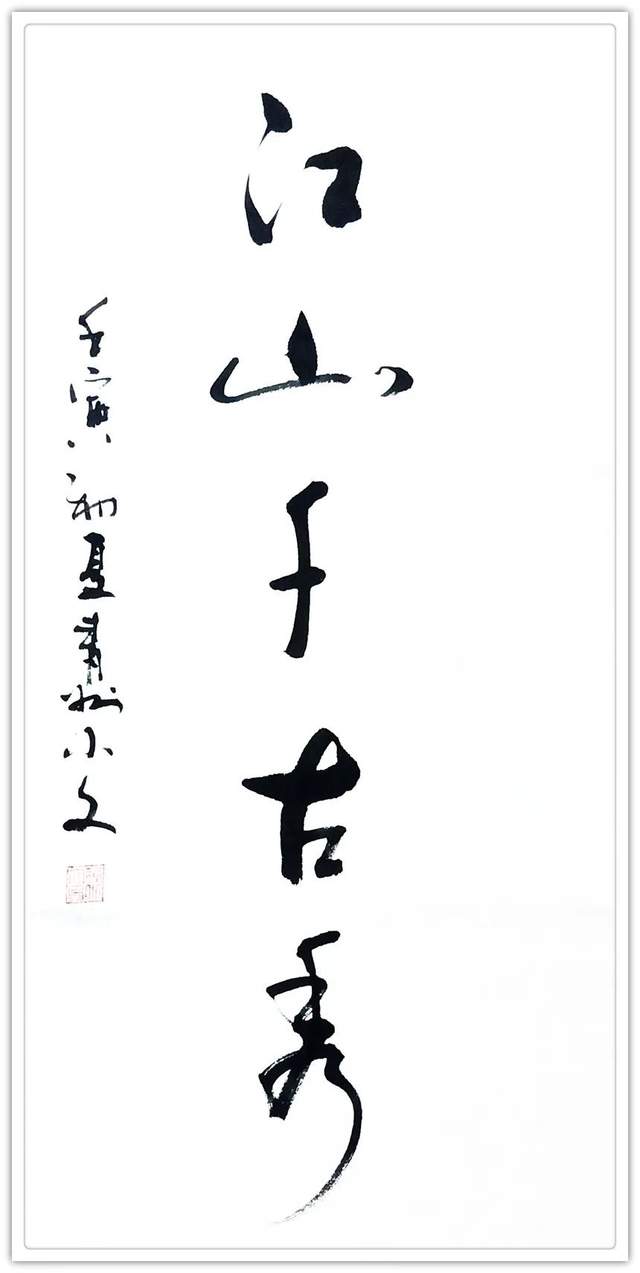 江山千古秀
壬寅初夏青州小文